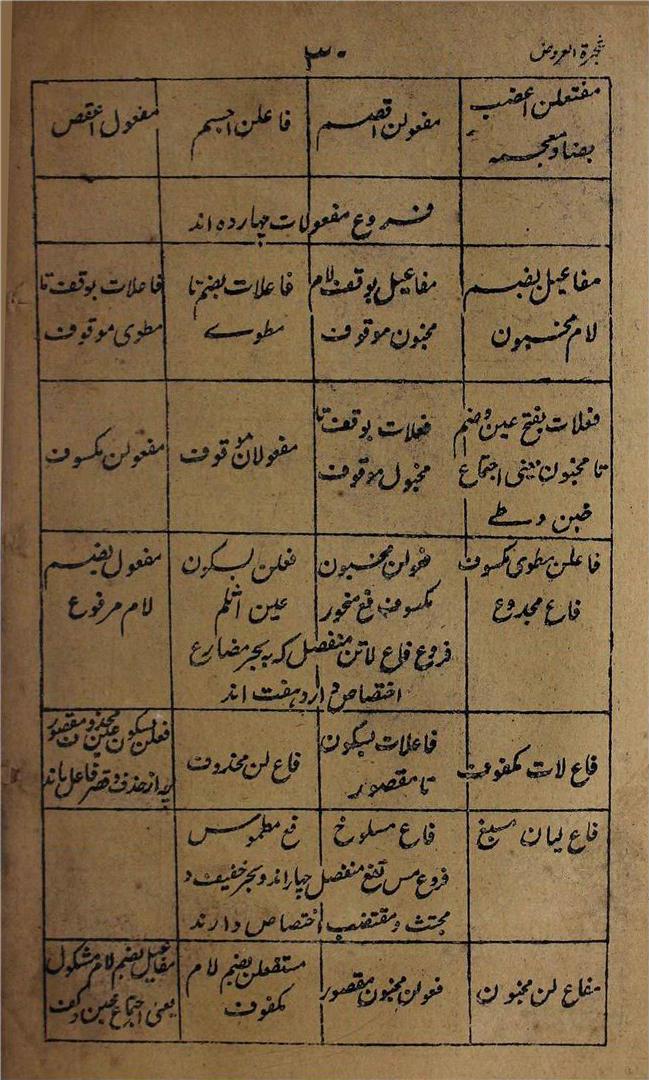 شجرة العروض
۳۰
مفتعلن اعضب
بضاد معجمه
مفعولن اقصم
فاعلن اجم
مفعول اعقص
فروع مفعولات چهارده اند
مفاعیل بضم
لام مخبون
مفاعیل بوقف لام
مخبون موقوف
فاعلات بضم تا
مطوے
فاعلات بوقف تا
مطوی موقوف
فعلات بفتح عین وضم
تا مخبون یعنی اجتماع
خبن وطے
فعلات بوقف تا
مخبول موقوف
مفعولان موقوف
مفعولن مکسوف
فاعلن مطوی مکسوف
فاع مجدوع
فعولن مخبون
مکسوف فع منحور
فعلن بسکون
عین اثلم
مفعول بضم
لام مرفوع
فروع فاع لاتن منفصل که به بحر مضارع
اختصاص دارد هفت اند
فاع لات مکفوف
فاعلات بسکون
تا مقصور
فاع لن محذوف
فعلن بسکون عین محذوف مقصور
فاع لیان مسبغ
فاع مسلوخ
فع مطموس
فروع مس تفع منفصل چهار اند و بحر خفیف و
مجتث و مقتضب اختصاص دارند
مفاع لن مخبون
فعولن مخبون مقصور
مستفعلن بضم لام
مکفوف
مفاعیل بضم لام مشکول
یعنی اجتماع خبن و کف